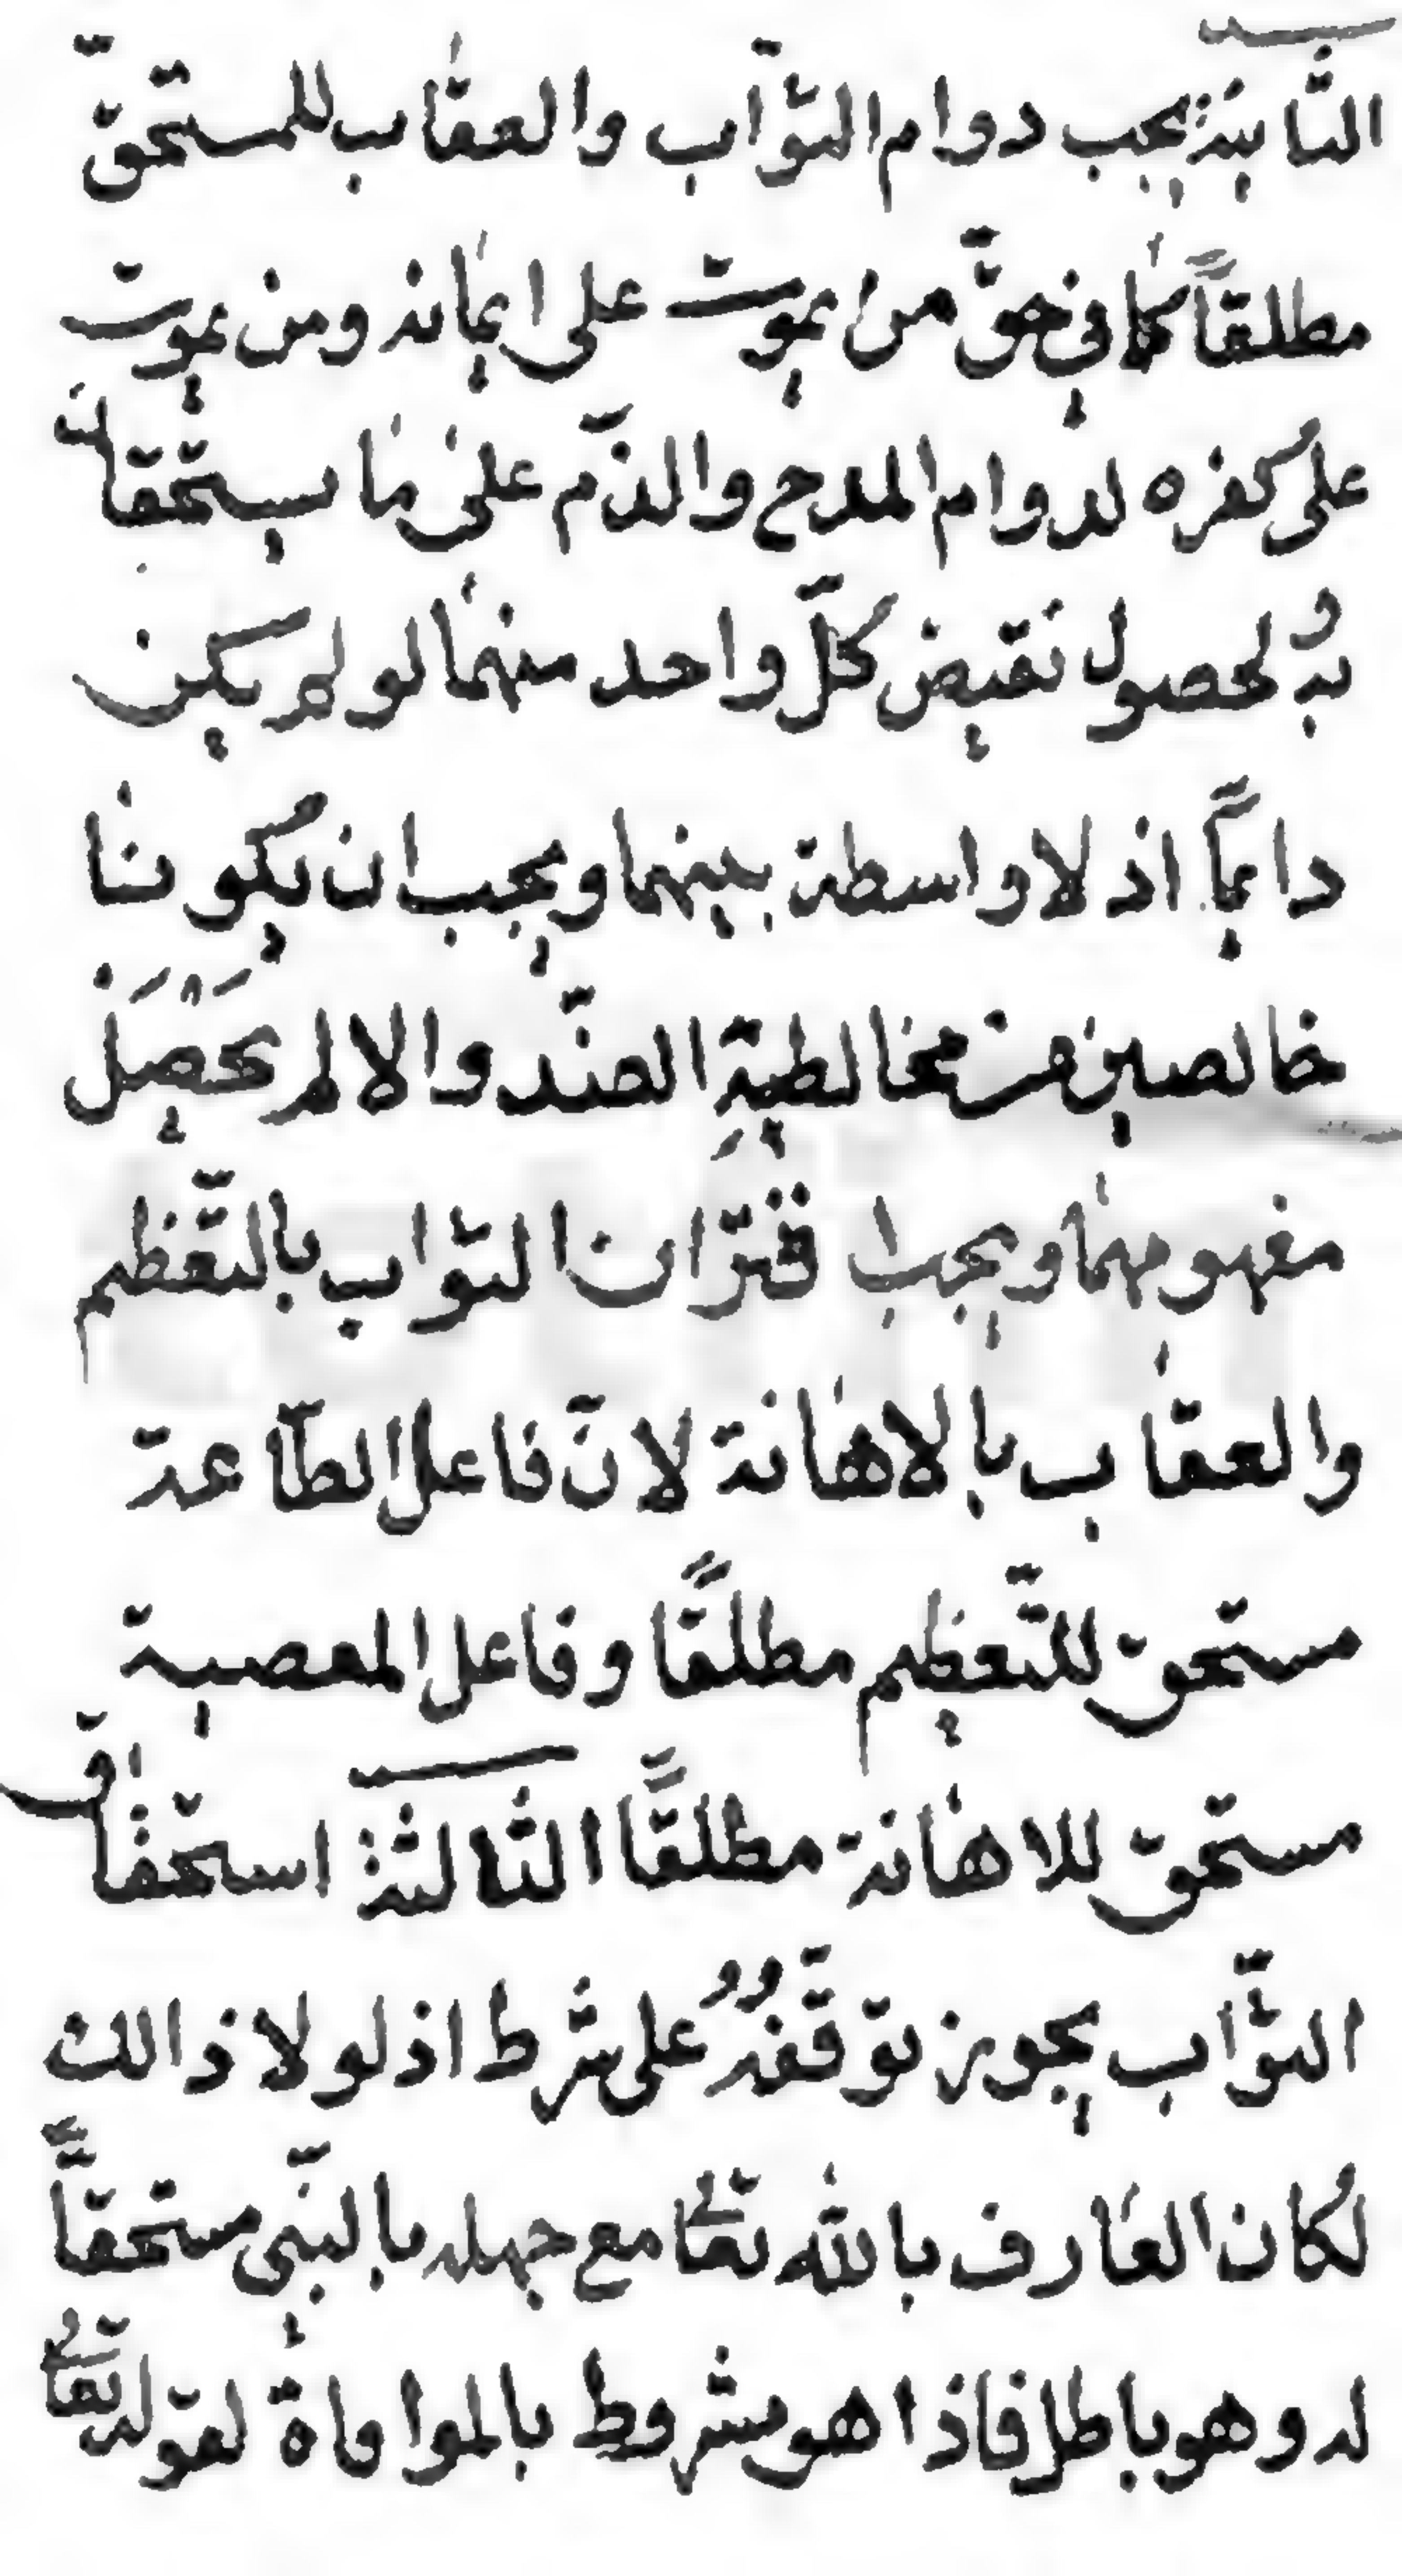 الثّانية يجب دوام الثّواب والعقاب للمستحقّ
مطلقاً كما في حقّ من يموت على ايمانه ومن يموت
على كفره لدوام المدح والذّم على ما يستحقّان
به لحصول نقيض كلّ واحد منهما لو لم يكن
دايماً اذ لا واسطة بينهما ويجب ان يكونا
خالصين من مخالطية الضّد والا لم يحصل
مفهومهما ويجب اقتران الثواب بالتّعظيم
والعقاب بالاهانة لانّ فاعل الطّاعة
مستحق للتّعظيم مطلقًا وفاعل المعصية
مستحق للاهانة مطلقًا الثالثة استحقاق
الثّواب يجوز توقّفه على شرط اذ لولا ذالك
لكان العارف بالله تعالى مع جهله بالنّبي مستحقاً
له وهو باطل فاذا هو مشروط بالموافاة لقوله تعالى